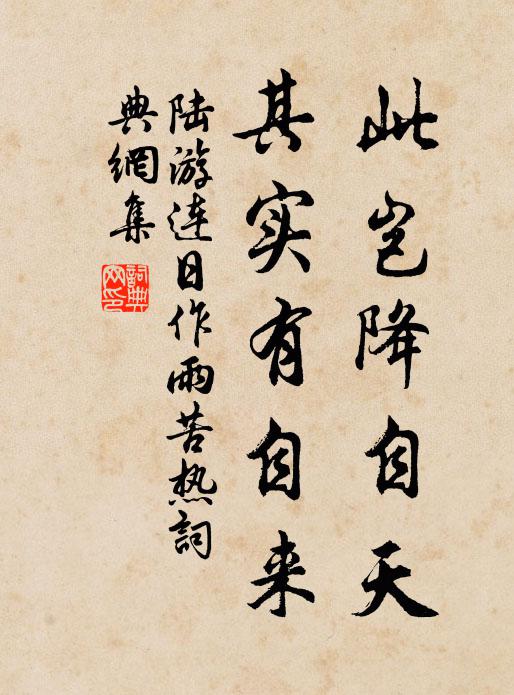 此岂降自天
其实有自来
陆游连日作雨苦热詞
典網集
詞典
网印